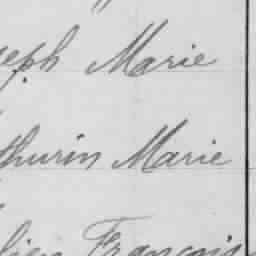 seph Marie
thurin Marie
lien François